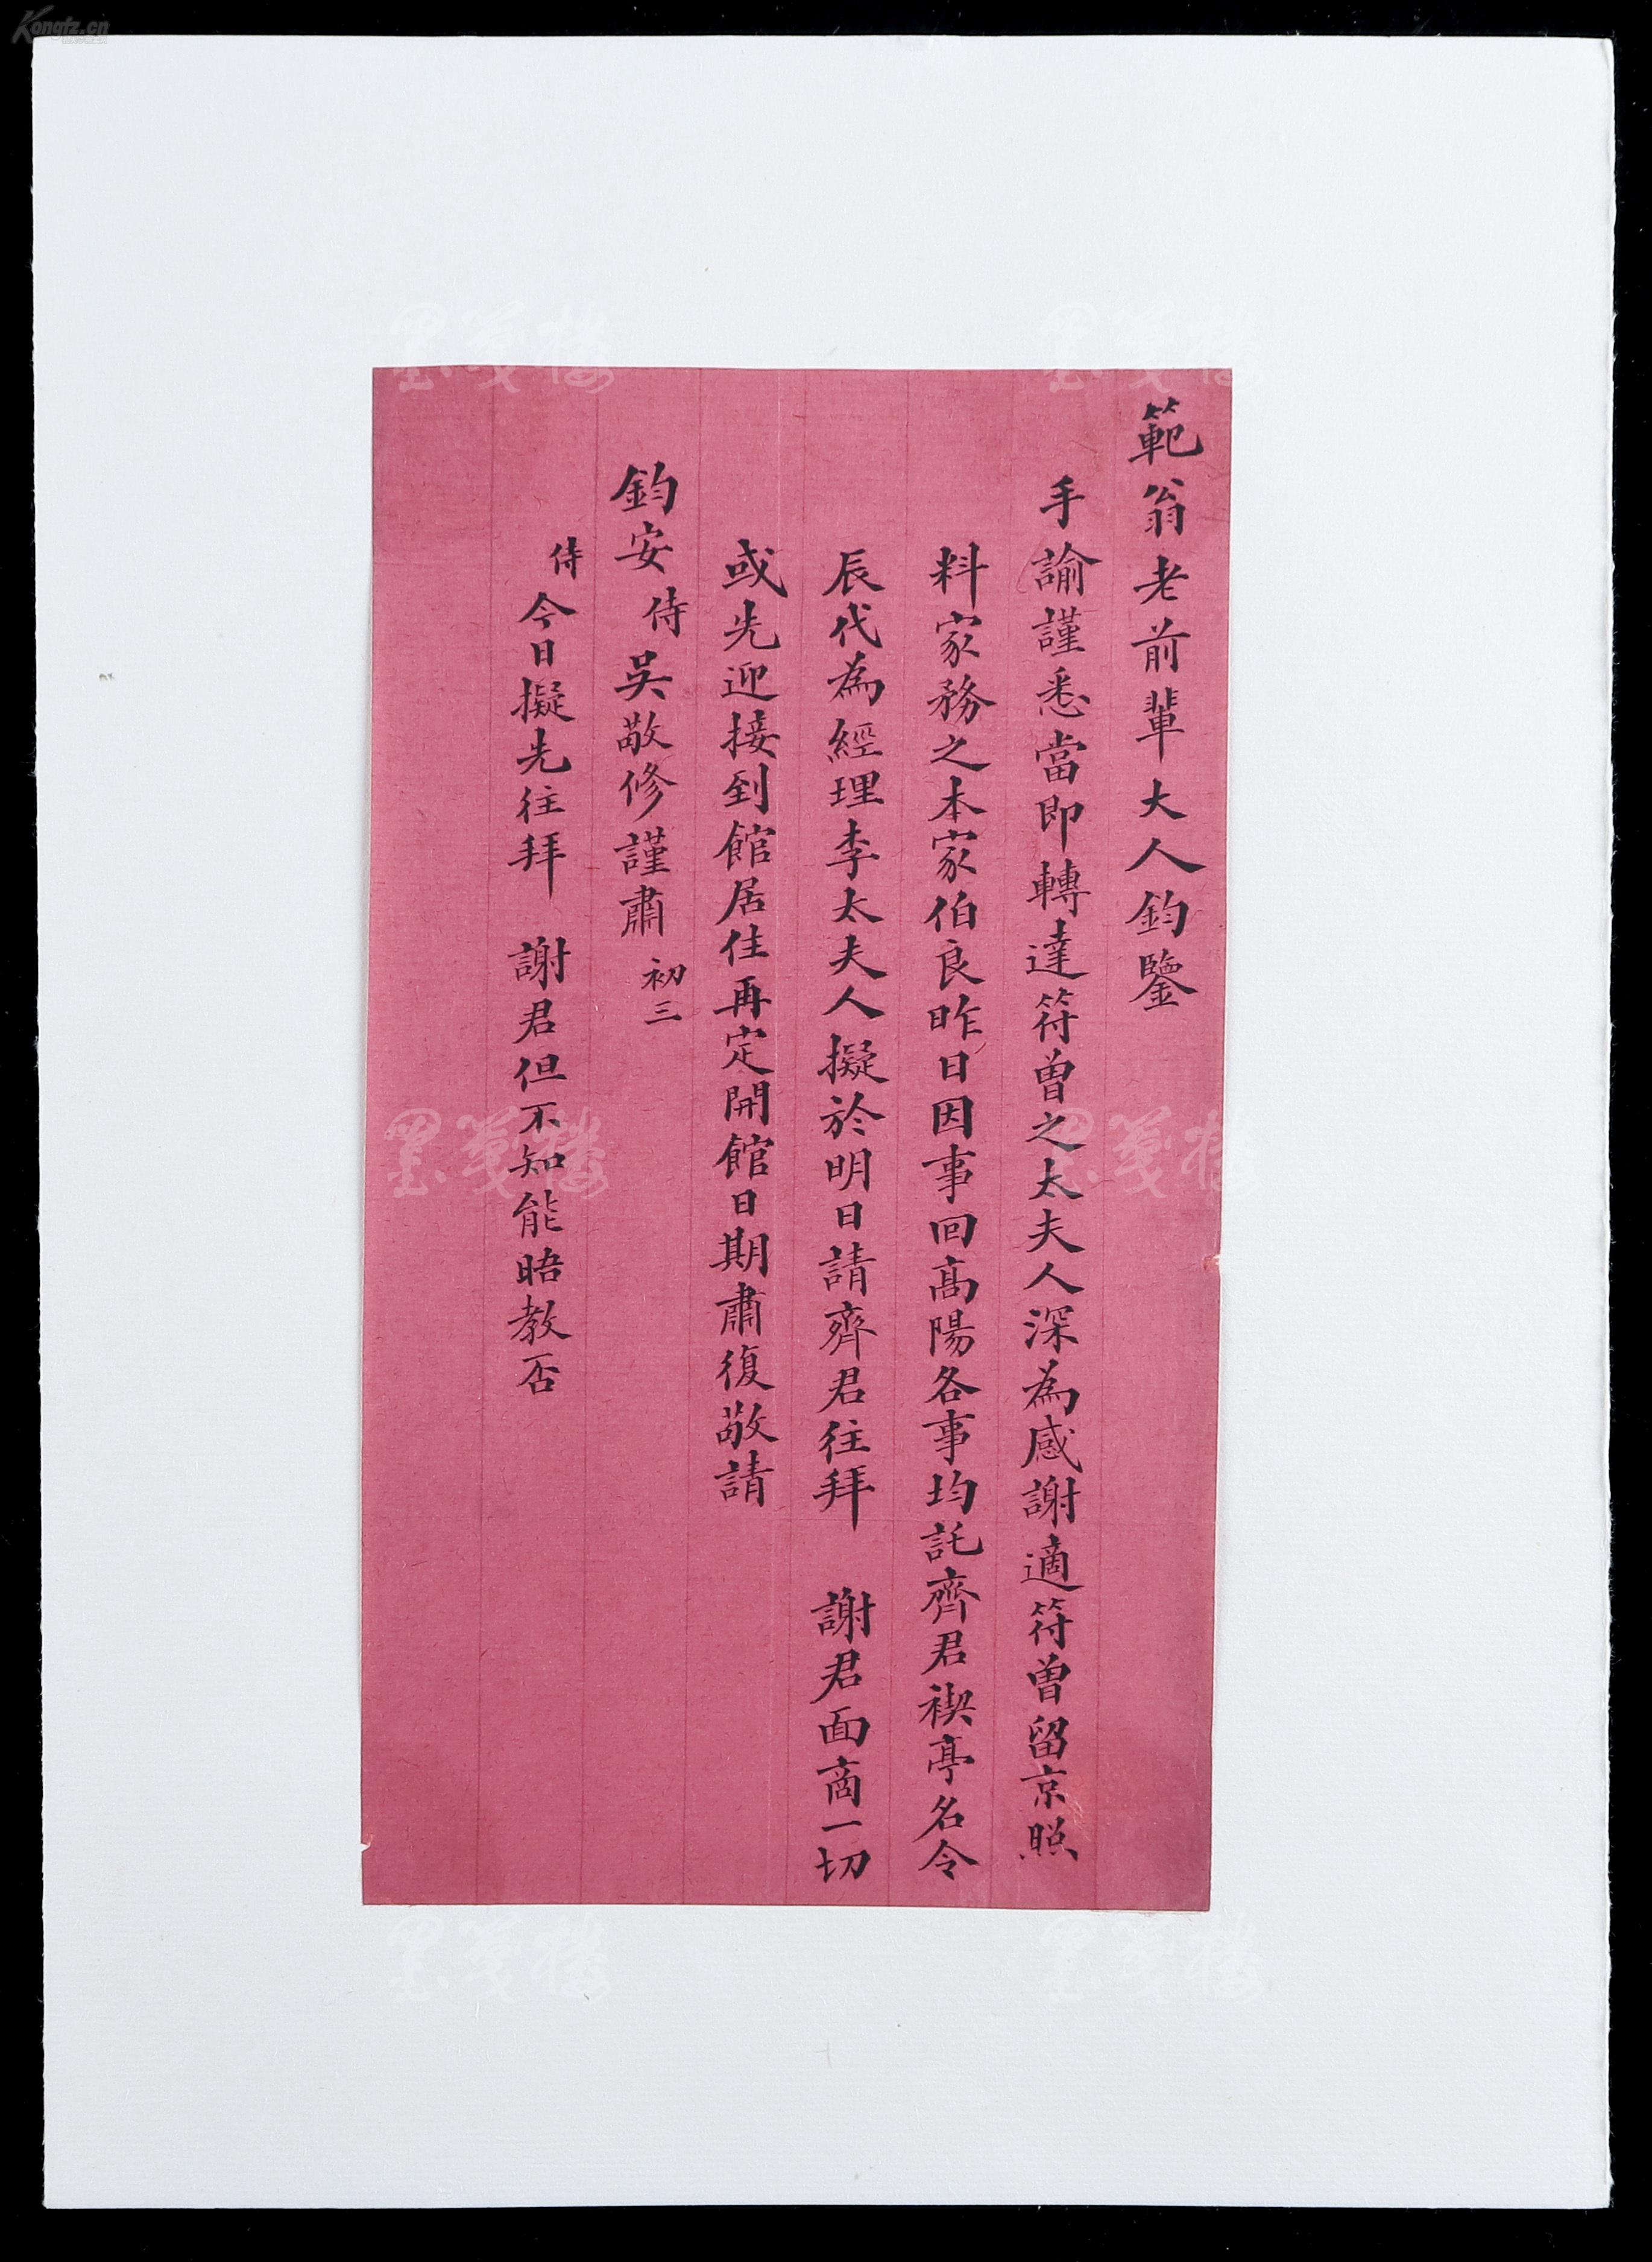 範翁老前輩大人鈞鑒
手諭謹悉當即轉達符曾之太夫人深為感謝適符曾留京照
料家務之本家伯良昨日因事回高陽各事均託齊君禊亭名令
辰代為經理李太夫人擬於明日請齊君往拜 謝君面商一切
或先迎接到館居住再定開館日期肅復敬請
鈞安侍吳敬修謹肅 初三
侍今日擬先往拜 謝君但不知能晤教否
Kongfz.cn
墨箋樓
墨箋樓
墨箋樓
墨箋樓
墨箋樓
墨箋樓